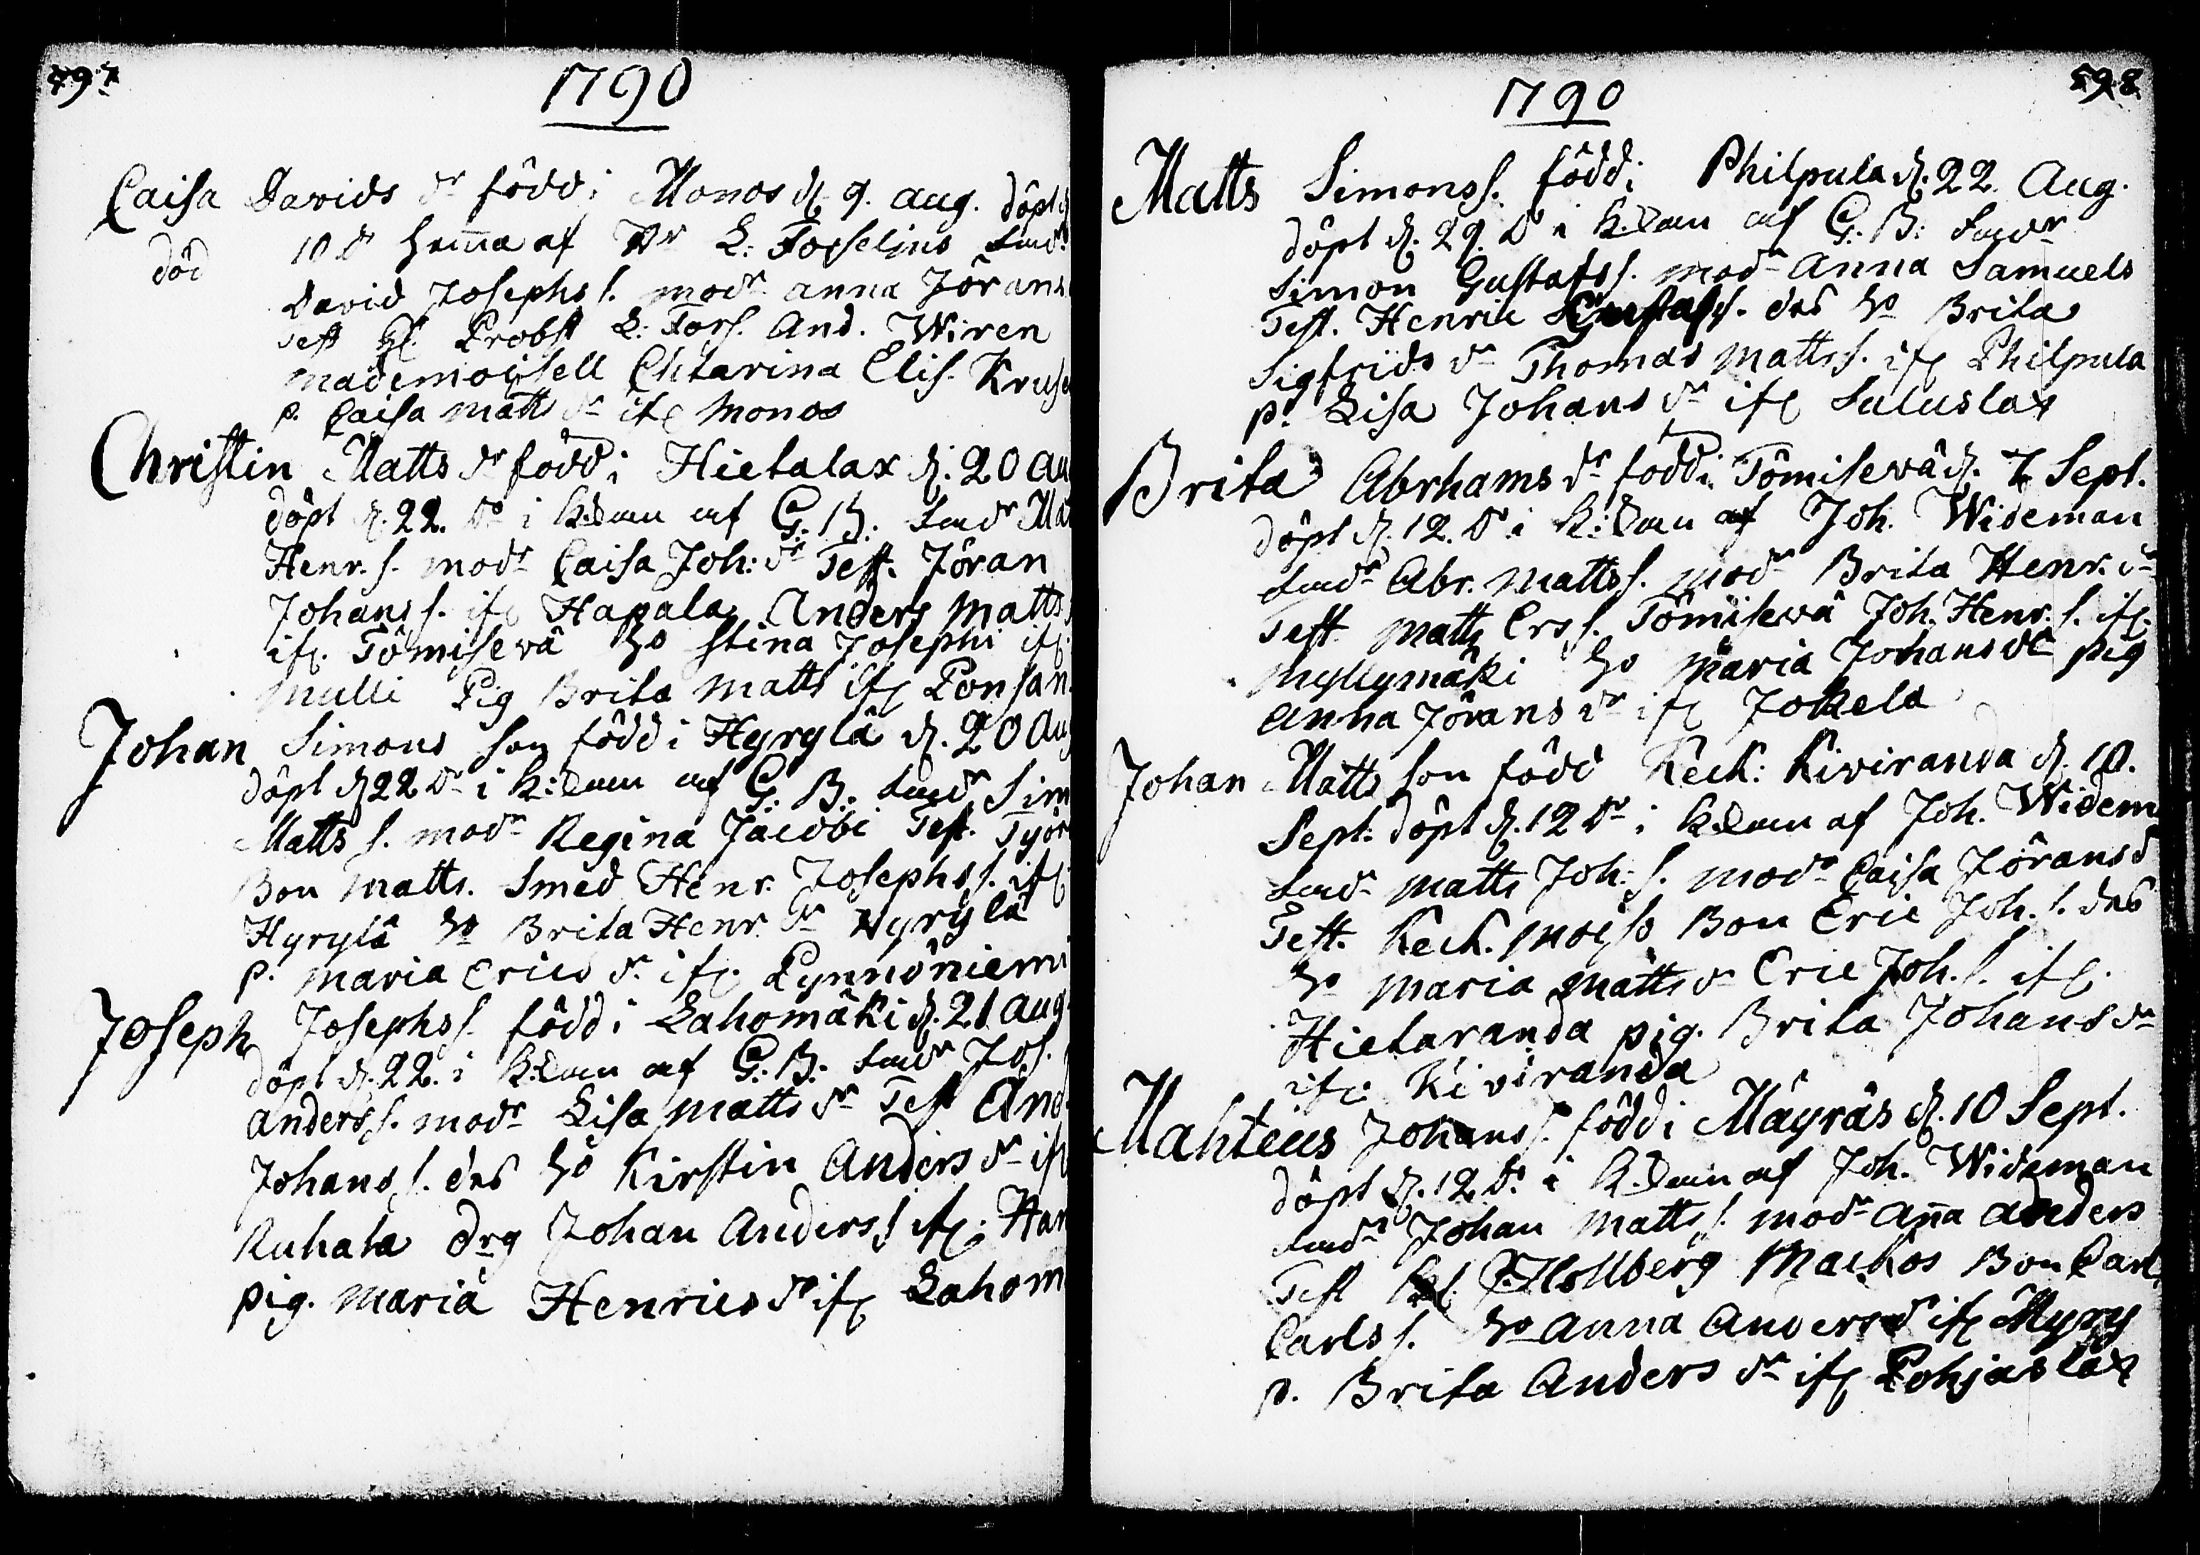 797
1790
Caisa Davids dr född i Monos d. 9. Aug. döpt d
död 10 do hem̄a af Pr L: Forselius
David Josephs s. modr Anna Jörans
Test H. Probst L: Fors. And. Wiren
Mademoisell Chtarina Elis. Kruse
p. Caisa Matts dr if: Monos
Christin Matts dr född i Hietalax d. 20 Au
döpt d. 22. do i K: af G: B: Ma
Henr. s. modr Caisa Joh: dr Test. Jöran
Johans s. if: Hapala Anders Matts
if. Tömisevä ho Stina Josephi if.
Mulli Pig Brita Matts if: Ponsan
Johan Simons son född i Hyrylä d. 20 Aug
döpt d 22 do i K: af G. B: Sim
Matts s. modr Regina Jacobi Test. Työr
Bon Matts. Smed Henr. Josephs s. if.
Hyrylä ho Brita Henr. dr Hyrylä
p. Maria Erics dr if. Pynnöniemi
Joseph Josephs s. född i Lahomäki d. 21 Aug
döpt d. 22. i K: af G: B: Jos.
Anders s. modr Lisa Matts dr Test And
Johans s. des ho Kirstin Anders dr if
Ruhala drg Johan Anders s if: Han
pig. Maria Henrics dr if: Lahom
598
1790
Matts Simons s. född i Philpula d. 22. Aug.
döpt d. 29. do i K: af G: B:
Simon Gustafs s. modr Anna Samuels
Test. Henric Gustafs s. des ho Brita
Sigfrids dr Thomas Matts s. if: Philpula
p. Lisa Johans dr if: Saluslax
Brita Abrhams dr född i Tömisevä d. 7 Sept.
döpt d. 12. do i K: af Joh. Wideman
Abr. Matts s. modr Brita Henr. dr
Test Matts Ers s. Tömisevä Joh. Henr. s. if.
Myllymäki ho Maria Johans dr pig
Anna Jörans dr if: Jokela
Johan Matts son född Keck: Kiviranda d. 10.
Sept: döpt d. 12 do i K: af Joh. Widem
Matts Joh: s. modr Caisa Jörans d
Test. Keck. Moiss Bon Eric Joh. s. des
ho Maria Matts dr Eric Joh. s. if.
Hietaranda pig. Brita Johans dr
if: Kiviranda
Mahteus Johans s. född i Mäyräs d. 10 Sept.
döpt d. 12. do i K: af Joh. Wideman
Johan Matts s. modr An̄a Anders
Test Hollberg Mackos Bon Carl
Carls s. ho Anna Anders dr if: Myry
p. Brita Anders dr if: Pohjaslax